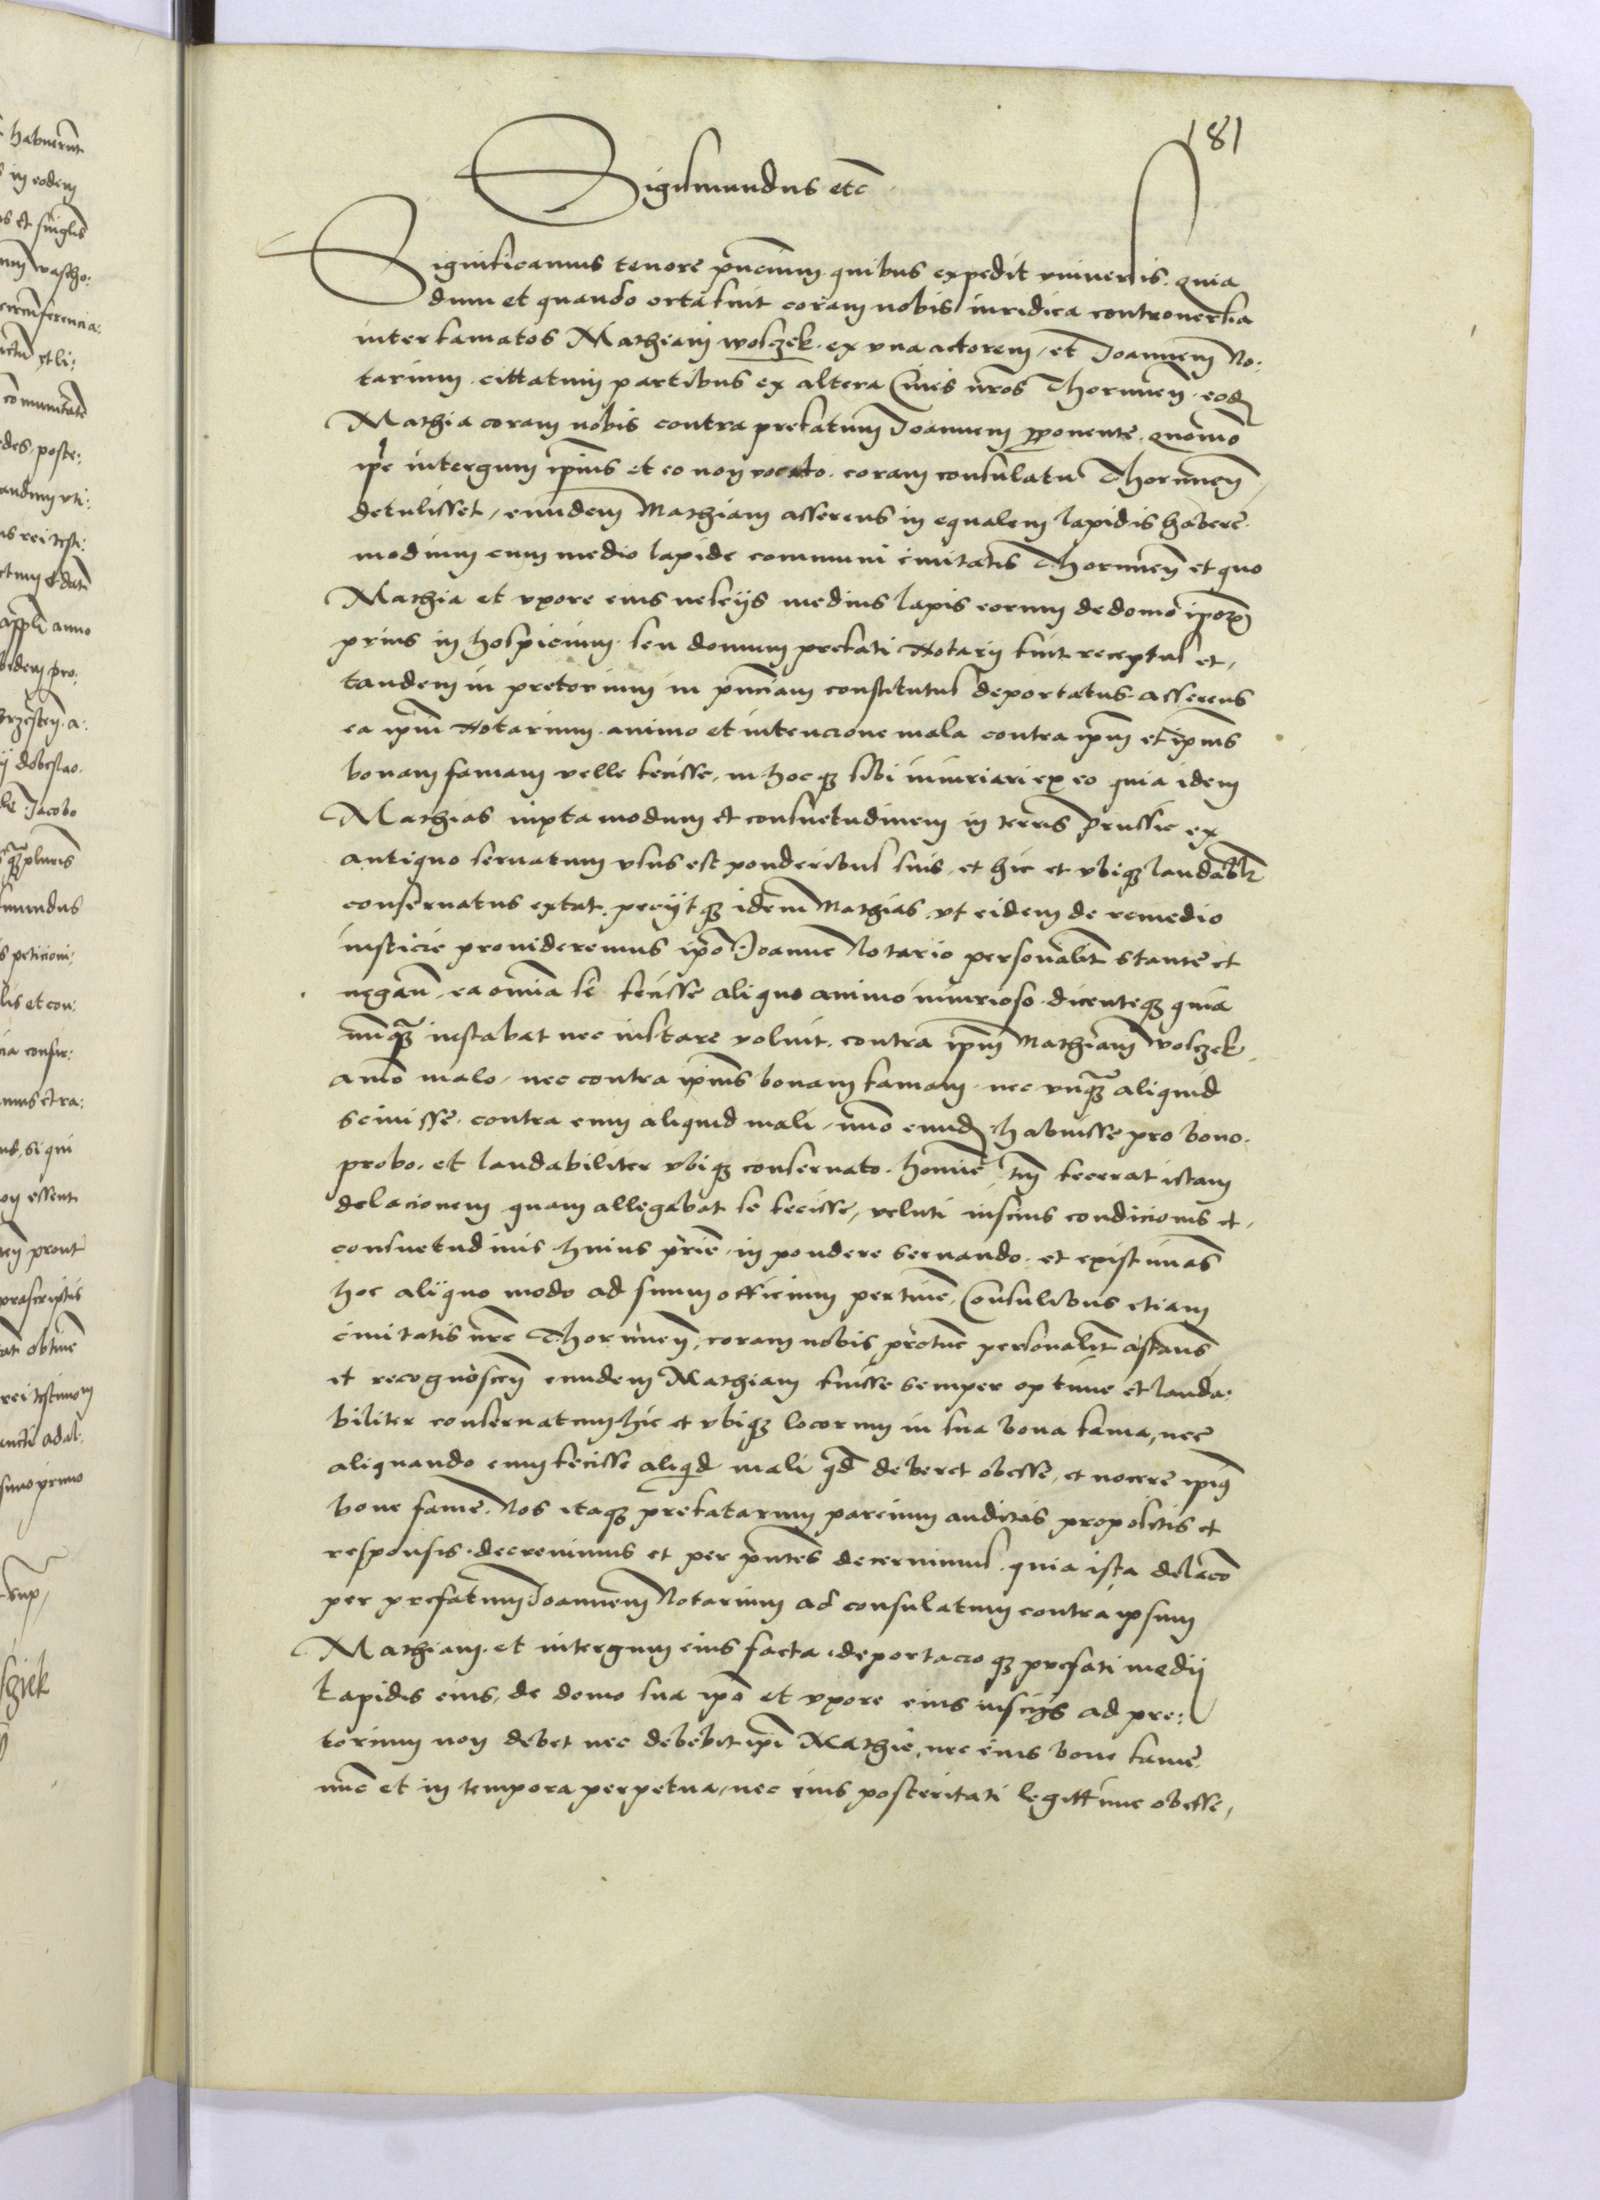 181
Sigismundus etc
Significamus tenore pñcium quibus expedit vniuersis. quia
dum et quando orta fuit coram nobis iuridica controuersia
inter famatos Mathiam wolczek. ex vna actorem, et Joannem No:
tarium. cittatum partibus ex altera Ciues ñros Thorunen. eod
Mathia coram nobis contra prefatum Joannem proponente. quomo
ipe intergum ipius et eo non vocato. coram consulatu Thorunen
detulisset, eundem Mathiam asserens in equalem lapidis habere
modium cum medio lapide communi ciuitatis Thorunen et quo
Mathia et vxore eius nesciis medius lapis eorum de domo ipoz
prius in hospicium. seu domum prefati Notarij fuit receptus et,
tandem in pretorium in pñciam constitutus deportatus. asserens
ea ipm Notarium. animo et intencione mala contra ipm et ipius
bonam famam velle fecisse, in hocq sibi iniuriari ex eo quia idem
Mathias iuxta modum et consuetudinem in terris Prussie ex
antiquo seruatum vsus est ponderibus suis, et hic et vbiq laudabr
conseruatus extat. peciitq idem Mathias. vt eidem de remedio
iusticie prouideremus ipo Joanne Notario personalit stante et
negan. ea omia se fecisse aliquo animo iniurioso. dicenteq quia
nunq instabat nec instare voluit. contra ipm Mathiam wolczek
amo malo. nec contra ipius bonam famam. nec vnq aliquid
sciuisse. contra eum aliquid mali, imo eund habuisse pro bono.
probo. et laudabiliter vbiq conseruato. homie, tm fecerat istam
delacionem quam allegabat se fecisse, veluti inscius condicionis et,
consuetudinis huius prie in pondere seruando. et existimas
hoc aliquo modo ad suum officium pertinē, Consulibus etiam
ciuitatis ñre Thorunen, coram nobis protunc personalit astans
et recognoscen eundem Mathiam fuisse semper optime et lauda:
biliter conseruatum hic et vbiq locorum in sua bona fama, nec
aliquando eum fecisse aliqd mali qd deberet obesse, et nocere ipius
bone fame. Nos itaq prefatarum parcium auditis propositis et
responsis. decreuimus et per pñtes decernimus. quia ista delaco
per prefatum Joannem Notarium ad consulatum contra ipsum
Mathiam. et intergum eius facta. deportacio q prefati medij
lapidis eius, de domo sua ipo et vxore eius insciis ad pre:
torium non debet nec debebit ipi Mathie, nec eius bone fame
nuc et in tempora perpetua, nec eius posteritati legittime obesse,